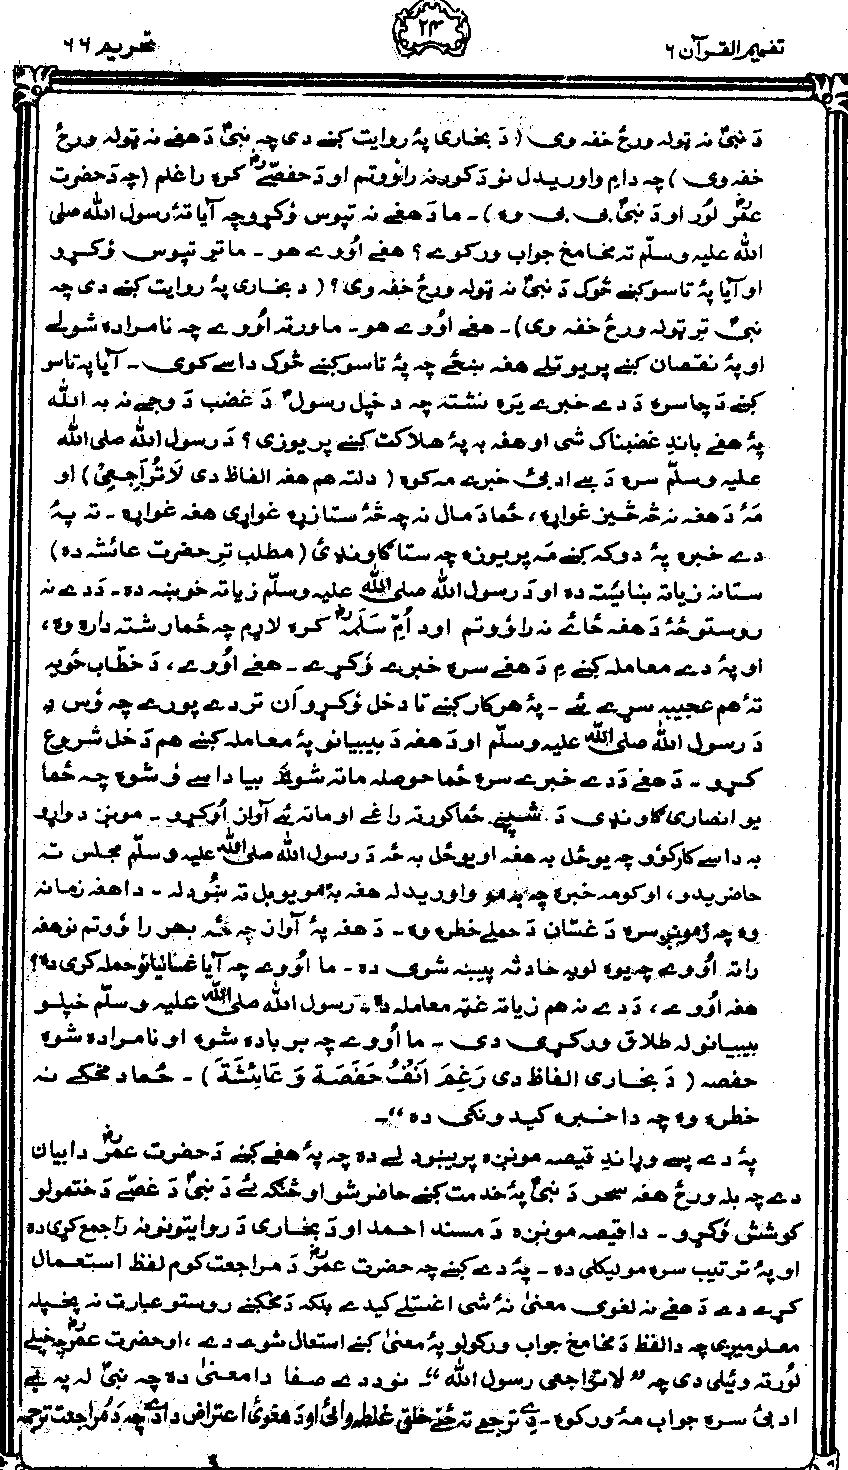 تفهیم القرآن ۶
۲۴
تحریم ۶۶
دَ نبیؐ نہ ټولہ ورځ خفہ وی (دَ بخاری پہٗ روایت کښے دی چہ نبیؐ دَ هغے نہ ټولہ ورځ
خفہ وی) چہ دا مِ واوریدل نو دَ کور نہ را ووتم او دَ حفصےؓ کرہ را غلم (چہ دَ حضرت
عمرؓ لُور او دَ نبیؐ بی بی وہ)۔ ما دَ هغے نہ تپوس وٗکړو چہ آیا تہٗ رسول الله صلی
الله علیہ وسلّم تہ مخامخ جواب ورکوے؟ هغے اوٗوے هو۔ ما ترِ تپوس وٗکړو
او آیا پہٗ تاسو کښے څوک دَ نبیؐ نہ ټولہ ورځ خفہ وی؟ (د بخاری پہٗ روایت کښے دی چہ
نبیؐ ترِ ټولہ ورځ خفہ وی)۔ هغے اوٗوے هو۔ ما ورتہ اوٗوے چہ نامرادہ شولے
او پہٗ نقصان کښے پریوتلے هغہ ښځے چہ پہٗ تاسو کښے څوک داسے کوی۔ آیا پہ تاسو
کښے دَ چا سرہ دَ دے خبرے یَرہ نشتہ چہ د خپل رسولؐ دَ غضب دَ وجے نہ بہ الله
پہٗ هغے باندِ غضبناک شی او هغہ بہ پہٗ هلاکت کښے پریوزی؟ دَ رسول الله صلی الله
علیہ وسلّم سرہ دَ بے ادبئ خبرے مہ کوہ (دلتہ هم هغہ الفاظ دی لَا تُرَاجِعِیْ) او
مَہٗ دَ هغہ نہ څہ څیز غواړہ، ځما دَ مال نہ چہ څہٗ ستا زړہ غواړی هغہ غواړہ۔ تہ پہٗ
دے خبرہ پہٗ دوکہ کښے مَہ پریوزہ چہ ستا ګاونډئ (مطلب ترِ حضرت عائشہ دہ)
ستا نہ زیاتہ ښائیستہ دہ او دَ رسول الله صلی الله علیہ وسلّم زیاتہ خوښہ دہ۔ دَ دے نہ
روستو ځہٗ دَ هغہ ځائے نہ را ووتم او د اُمِّ سَلَمہؓ کرہ لاړم چہ ځما رشتہ دارہ وہ،
او پہٗ دے معاملہ کښے مِ دَ هغے سرہ خبرے وٗکړے۔ هغے اوٗوے، دَ خطّاب ځویہ
تہٗ هم عجیبہ سړے ئے۔ پہٗ هر کار کښے تا دخل وٗکړو اَن تر دے پورے چہ وُس دِ
دَ رسول الله صلی الله علیہ وسلّم او دَ هغہ دَ بیبیانو پہٗ معاملہ کښے هم دَخل شروع
کړو۔ دَ هغے دَ دے خبرے سرہ ځما حوصلہ ماتہ شوہ۔ بیا داسے وٗ شوہ چہ ځما
یو انصاری ګاونډی دَ شپے ځما کور تہ را غے او ما تہ ئے آواز اوٗکړو۔ مونږ دواړو
بہ داسے کار کوٗو چہ یو ځل بہ هغہ او یو ځل بہ ځہ دَ رسول الله صلی الله علیہ وسلّم مجلس تہ
حاضریدو، او کومہ خبرہ چہ بہ مو واوریدلہ هغہ بہ مو یو بل تہ ښودلہ۔ دا هغہ زمانہ
وہ چہ زمونږ سرہ دَ غسّان دَ حملے خطرہ وہ۔ دَ هغہ پہٗ آواز چہ ځہ بهر را وٗوتم نو هغہ
را تہ اوٗوے چہ یوہ لویہ حادثہ پیښہ شوی دہ۔ ما اوٗوے چہ آیا غسانیانو حملہ کړی دہ؟
هغہ اوٗوے، دَ دے نہ هم زیاتہ غټہ معاملہ دہ۔ رسول الله صلی الله علیہ وسلّم خپلو
بیبیانو لہ طلاق ورکړی دی۔ ما اوٗوے چہ بربادہ شوہ او نامرادہ شوہ
حفصہ (دَ بخاری الفاظ دی رَغِمَ اَنْفُ حَفْصَةَ وَ عَائِشَةَ)۔ ځما د مخکے نہ
خطرہ وہ چہ دا خبرہ کیدونکی دہ“۔
پہٗ دے پسے وړاندِ قیصہ مونږہ پریښودلے دہ چہ پہٗ هغے کښے دَ حضرت عمرؓ دا بیان
دے چہ بلہ ورځ هغہ سحر دَ نبیؐ پہٗ خدمت کښے حاضر شو او څنګہ ئے دَ نبیؐ دَ غصّے دَ ختمولو
کوشش وٗکړو۔ دا قیصہ مونږہ دَ مسند احمد او دَ بخاری دَ روایتونو نہ را جمع کړی دہ
او پہٗ ترتیب سرہ مو لیکلی دہ۔ پہٗ دے کښے چہ حضرت عمرؓ دَ مراجعت کوم لفظ استعمال
کړے دے دَ هغے نہ لغوی معنیٰ نہٗ شی اغستلے کیدے بلکہ دَ مخکښے روستو عبارت نہ پخپلہ
معلومیږی چہ دا لفظ دَ مخامخ جواب ورکولو پہٗ معنیٰ کښے استعال شوے دے، او حضرت عمرؓ چہ خپلے
لُور تہ وئیلی دی چہ ”لا تراجعی رسول الله“۔ نو د دے صفا دا معنیٰ دہ چہ نبیؐ لہ پہ بے
ادبئ سرہ جواب مہٗ ورکوہ۔ دِے ترجمے تہ ځنے خلق غلطہ وائی او دَ هغوئ اعتراض دا دے چہ دَ مُراجعت ترجمہ